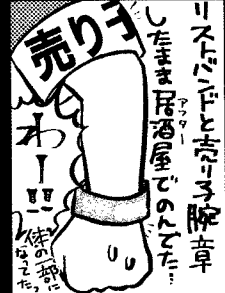 リストバンドと売り子腕章
したまま居酒屋でのんでた…
アフター
売り子
わー!!
体の一部に
なってたっ